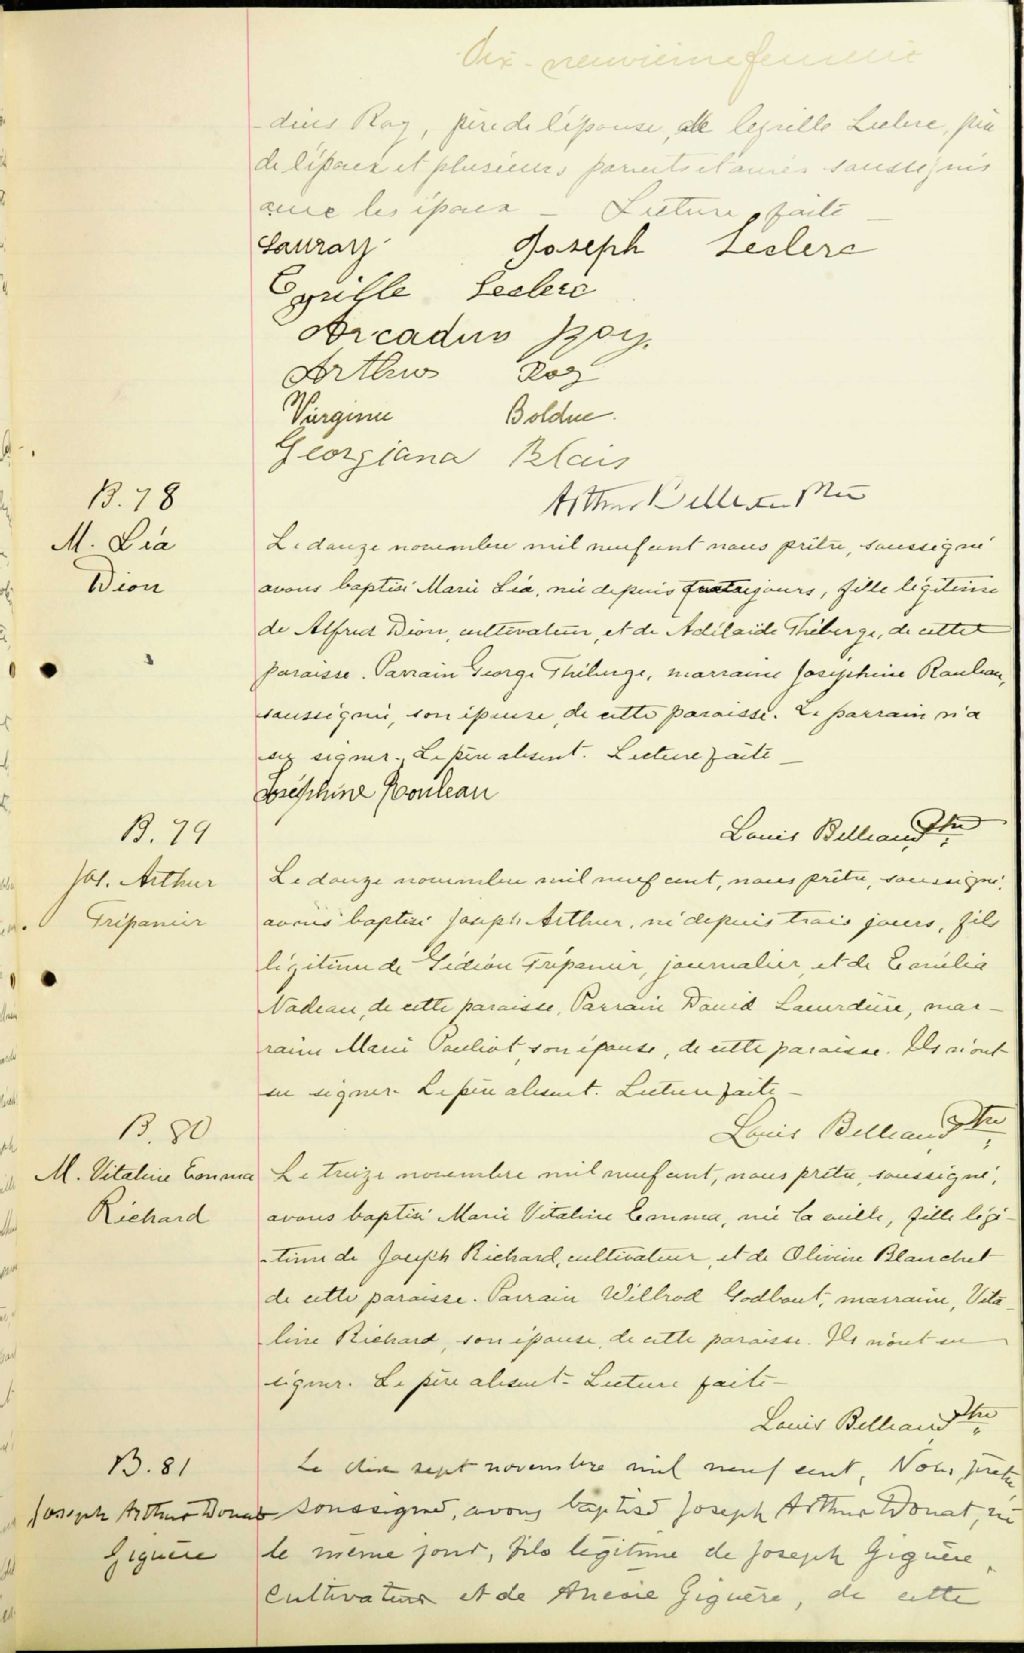 Dix-neuvième feuillet
-dius Roy, père de l'épouse, de Cyrille Leclerc, père
de l'époux et plusieurs parents et amis soussignés
avec les époux — Lecture faite —
Laura Roy Joseph Leclerc
Cyrille Leclerc
Arcadius Roy.
Arthur Roy
Virginie Bolduc.
Georgiana Blais
Arthur Ptre
B. 78
M. Léa
Dion
Le douze novembre mil neuf cent nous prêtre, soussigné
avons baptisé Marie Léa, née depuis quatre jours, fille légitime
de Alfred Dion, cultivateur, et de Adélaïde Théberge, de cette
paroisse. Parrain George Théberge, marraine Joséphine Rouleau,
soussignée, son épouse, de cette paroisse. Le parrain n'a
su signer. Le père absent. Lecture faite —
Joséphine Rouleau
Louis Ptre
B. 79
Jos. Arthur
Trépanier
Le douze novembre mil neuf cent, nous prêtre, soussigné,
avons baptisé Joseph Arthur, né depuis trois jours, fils
légitime de Gédéon Trépanier, journalier, et de Exmélia
Nadeau, de cette paroisse. Parrain David Laverdière, mar-
raine Marie Pouliot, son épouse, de cette paroisse. Ils n'ont
su signer. Le père absent. Lecture faite —
Louis Ptre
B. 80
M. Vitaline Emma
Richard
Le treize novembre mil neuf cent, nous prêtre, soussigné,
avons baptisé Marie Vitaline Emma, née la veille, fille légi-
-time de Joseph Richard, cultivateur, et de Olivine Blanchet
de cette paroisse. Parrain Wilbrod Godbout, marraine, Vita-
line Richard, son épouse, de cette paroisse. Ils n'ont su
signer. Le père absent — Lecture faite —
Louis Ptre
B. 81
Joseph Arthur Donat
Giguère
Le dix sept novembre mil neuf cent, Nous prêtre
soussigné, avons baptisé Joseph Arthur Donat, né
le même jour, fils légitime de Joseph Giguère,
cultivateur et de Giguère, de cette